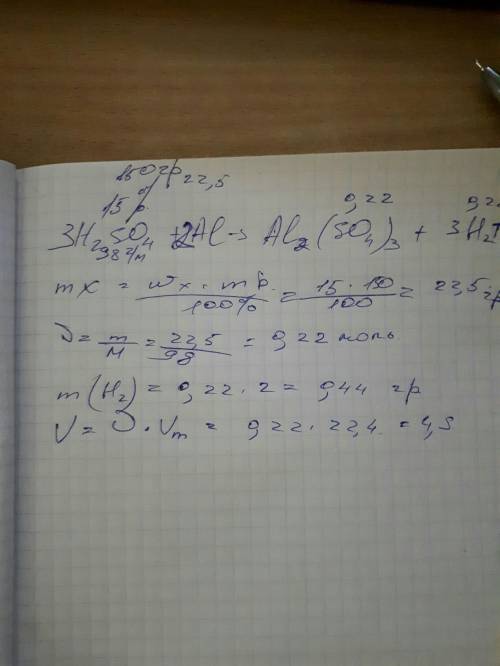 150гр
15% р. 22,5 0,22 0,22
3H₂SO₄ + 2Al → Al₂(SO₄)₃ + 3H₂↑
98 г/м
mx = wx · mр. / 100% = 15 · 150 / 100 = 22,5 гр
ν = m / M = 22,5 / 98 = 0,22 моль
m(H₂) = 0,22 · 2 = 0,44 гр
V = ν · Vm = 0,22 · 22,4 = 4,9